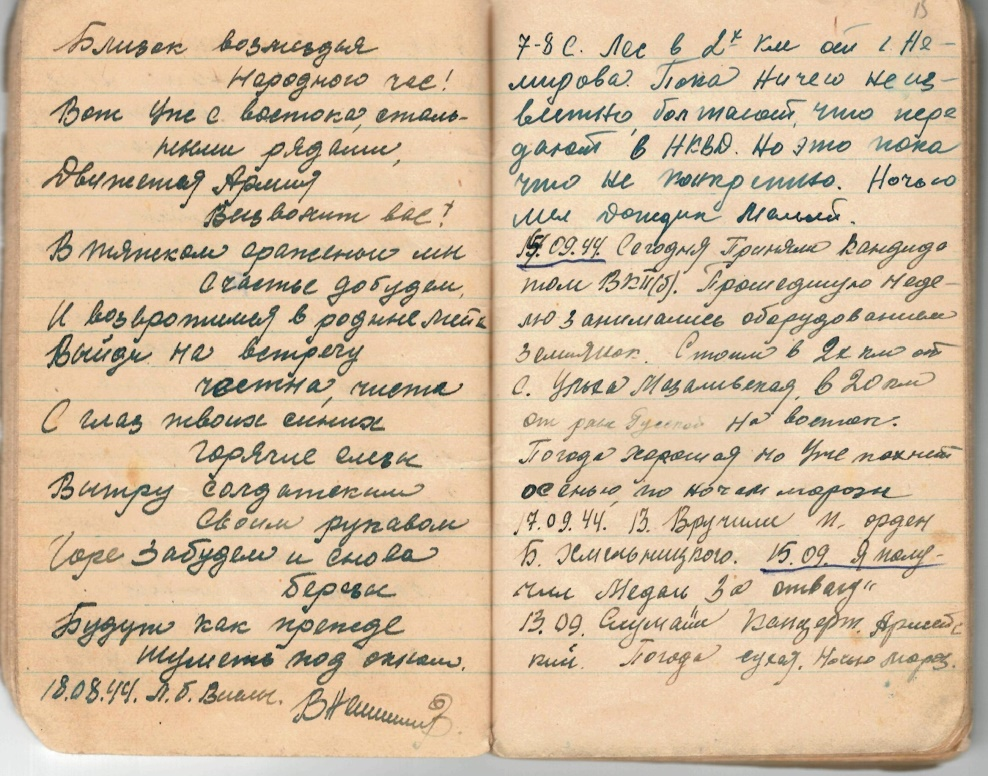 Близок возмездья
Народного час!
Вот уже с востока, сталь-
ными рядами,
Движется Армия
Вызволит вас!
В тяжком сражении мы
Счастье добудем,
И возвратимся в родные места
Выйдь на встречу
честна, чиста
С глаз твоих синих
горячие слезы
Вытру солдатским
своим рукавом
Горе забудем и снова
березы
Будут как прежде
шуметь под окном.
18.08.44. Л.б.
15
7-8 С. Лес в 2х км от г. Не-
мирова. Пока ничего не из-
вестно, болтают, что пере
дают в НКВД. Но это пока
что не конкретно. Ночью
шел дождик малый.
15.09.44. Сегодня Приняли кандида
том ВКП(б). Прошедшую неде-
лю занимались оборудованием
землянок. Стоим в 2х км от
с. Улька Мазаливская, в 20 км
от рави Русской на восток.
Погода хорошая но уже пахнет
осенью по ночам морозы
17.09.44. Вручили п. орден
Б. Хмельницкого. 15.09. Я полу-
чил Медаль За отвагу"
13.09. Слушали Концерт. Армейс
кий. Погода сухая. Ночью мороз.